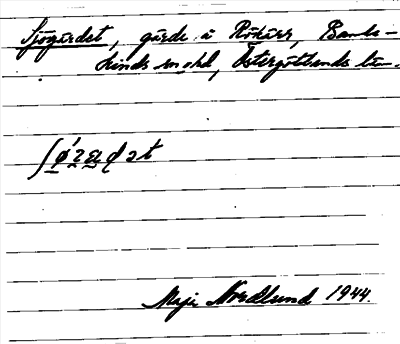 Sjögärdet, gärde å Rökärr, Bank-
kinds sn o hd, Östergötlands län.
Maja Nordlund 1944.